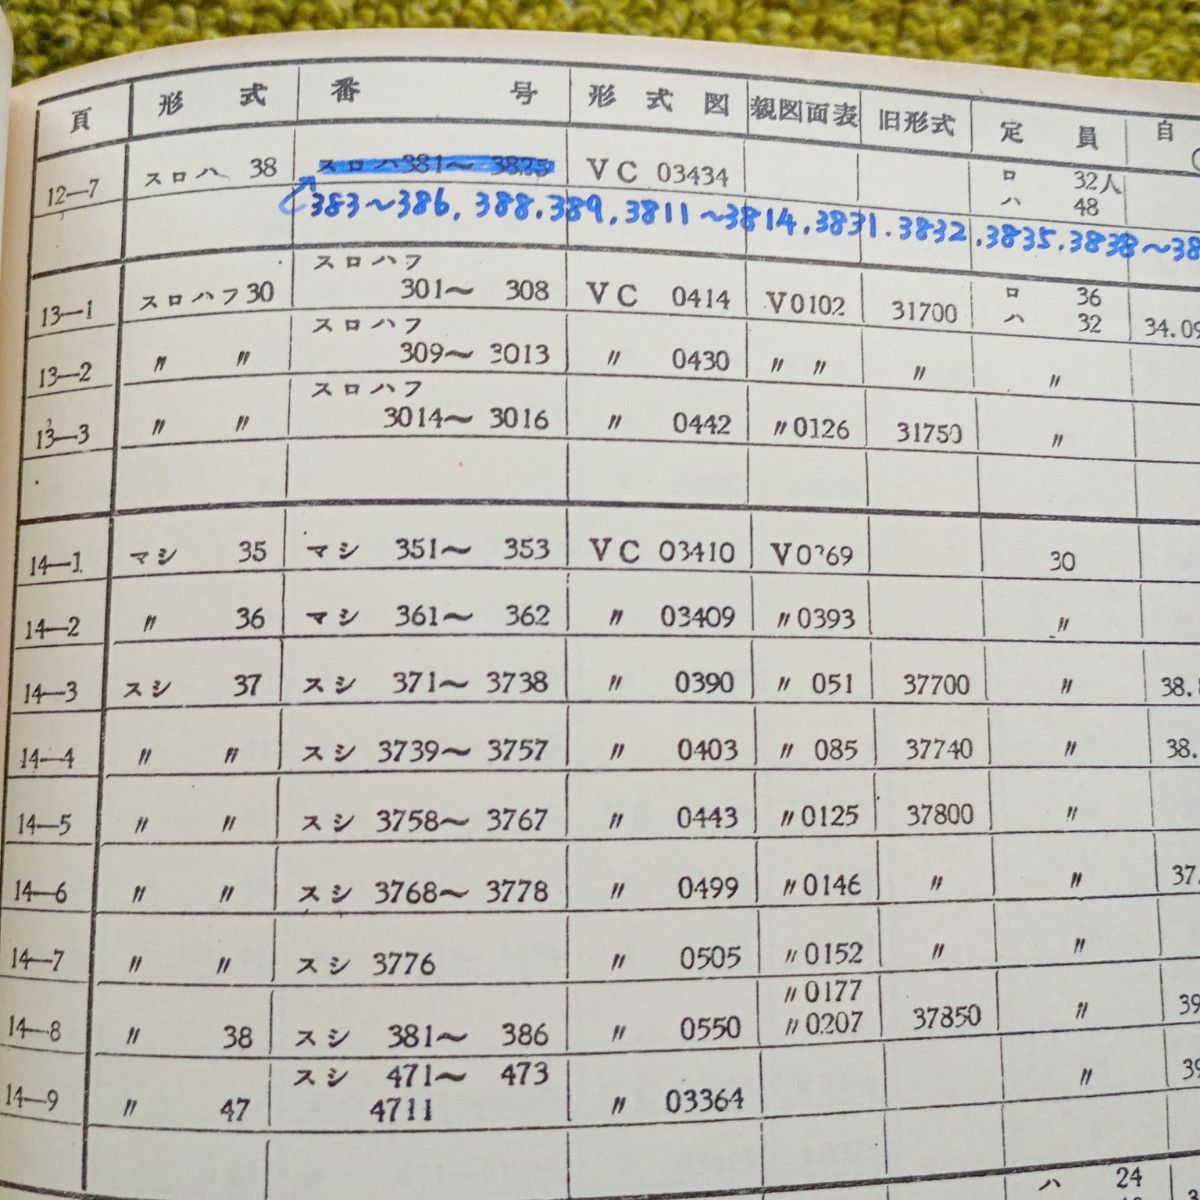 頁 形式 番号 形式図 親図面表 旧形式 定員 自
12—7 スロハ 38 スロハ381〜 3825 VC 03434 ロ 32人
ハ 48
383〜386, 388.389, 3811〜3814, 3831. 3832, 3835, 3838〜38
13—1 スロハフ30 スロハフ
301〜 308 VC 0414 V0102 31700 ロ 36
ハ 32 34.09
13—2 〃 〃 スロハフ
309〜 3013 〃 0430 〃 〃 〃 〃
13—3 〃 〃 スロハフ
3014〜 3016 〃 0442 〃0126 31750 〃
14—1 マシ 35 マシ 351〜 353 VC 03410 30
14—2 〃 36 マシ 361〜 362 〃 03409 〃0393 〃
14—3 スシ 37 スシ 371〜 3738 〃 0390 〃 051 37700 〃 38.
14—4 〃 〃 スシ 3739〜 3757 〃 0403 〃 085 37740 〃 38.
14—5 〃 〃 スシ 3758〜 3767 〃 0443 〃0125 37800 〃
14—6 〃 〃 スシ 3768〜 3778 〃 0499 〃0146 〃 〃 37.
14—7 〃 〃 スシ 3776 〃 0505 〃0152 〃 〃
14—8 〃 38 スシ 381〜 386 〃 0550 〃0177
〃0207 37850 〃 39
14—9 〃 47 スシ 471〜 473
4711 〃 03364 〃 39
ハ 24